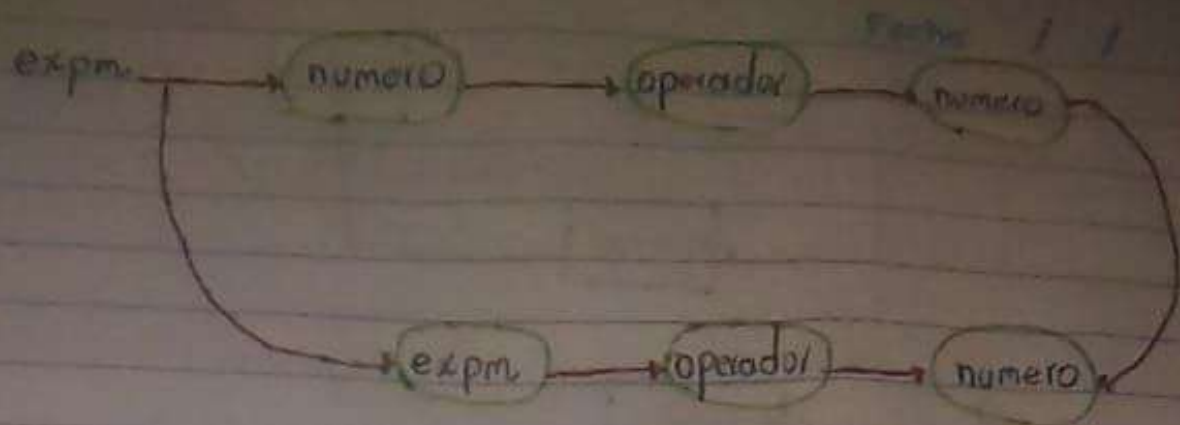 Fecha / /
expm. numero operador numero
expm. operador numero